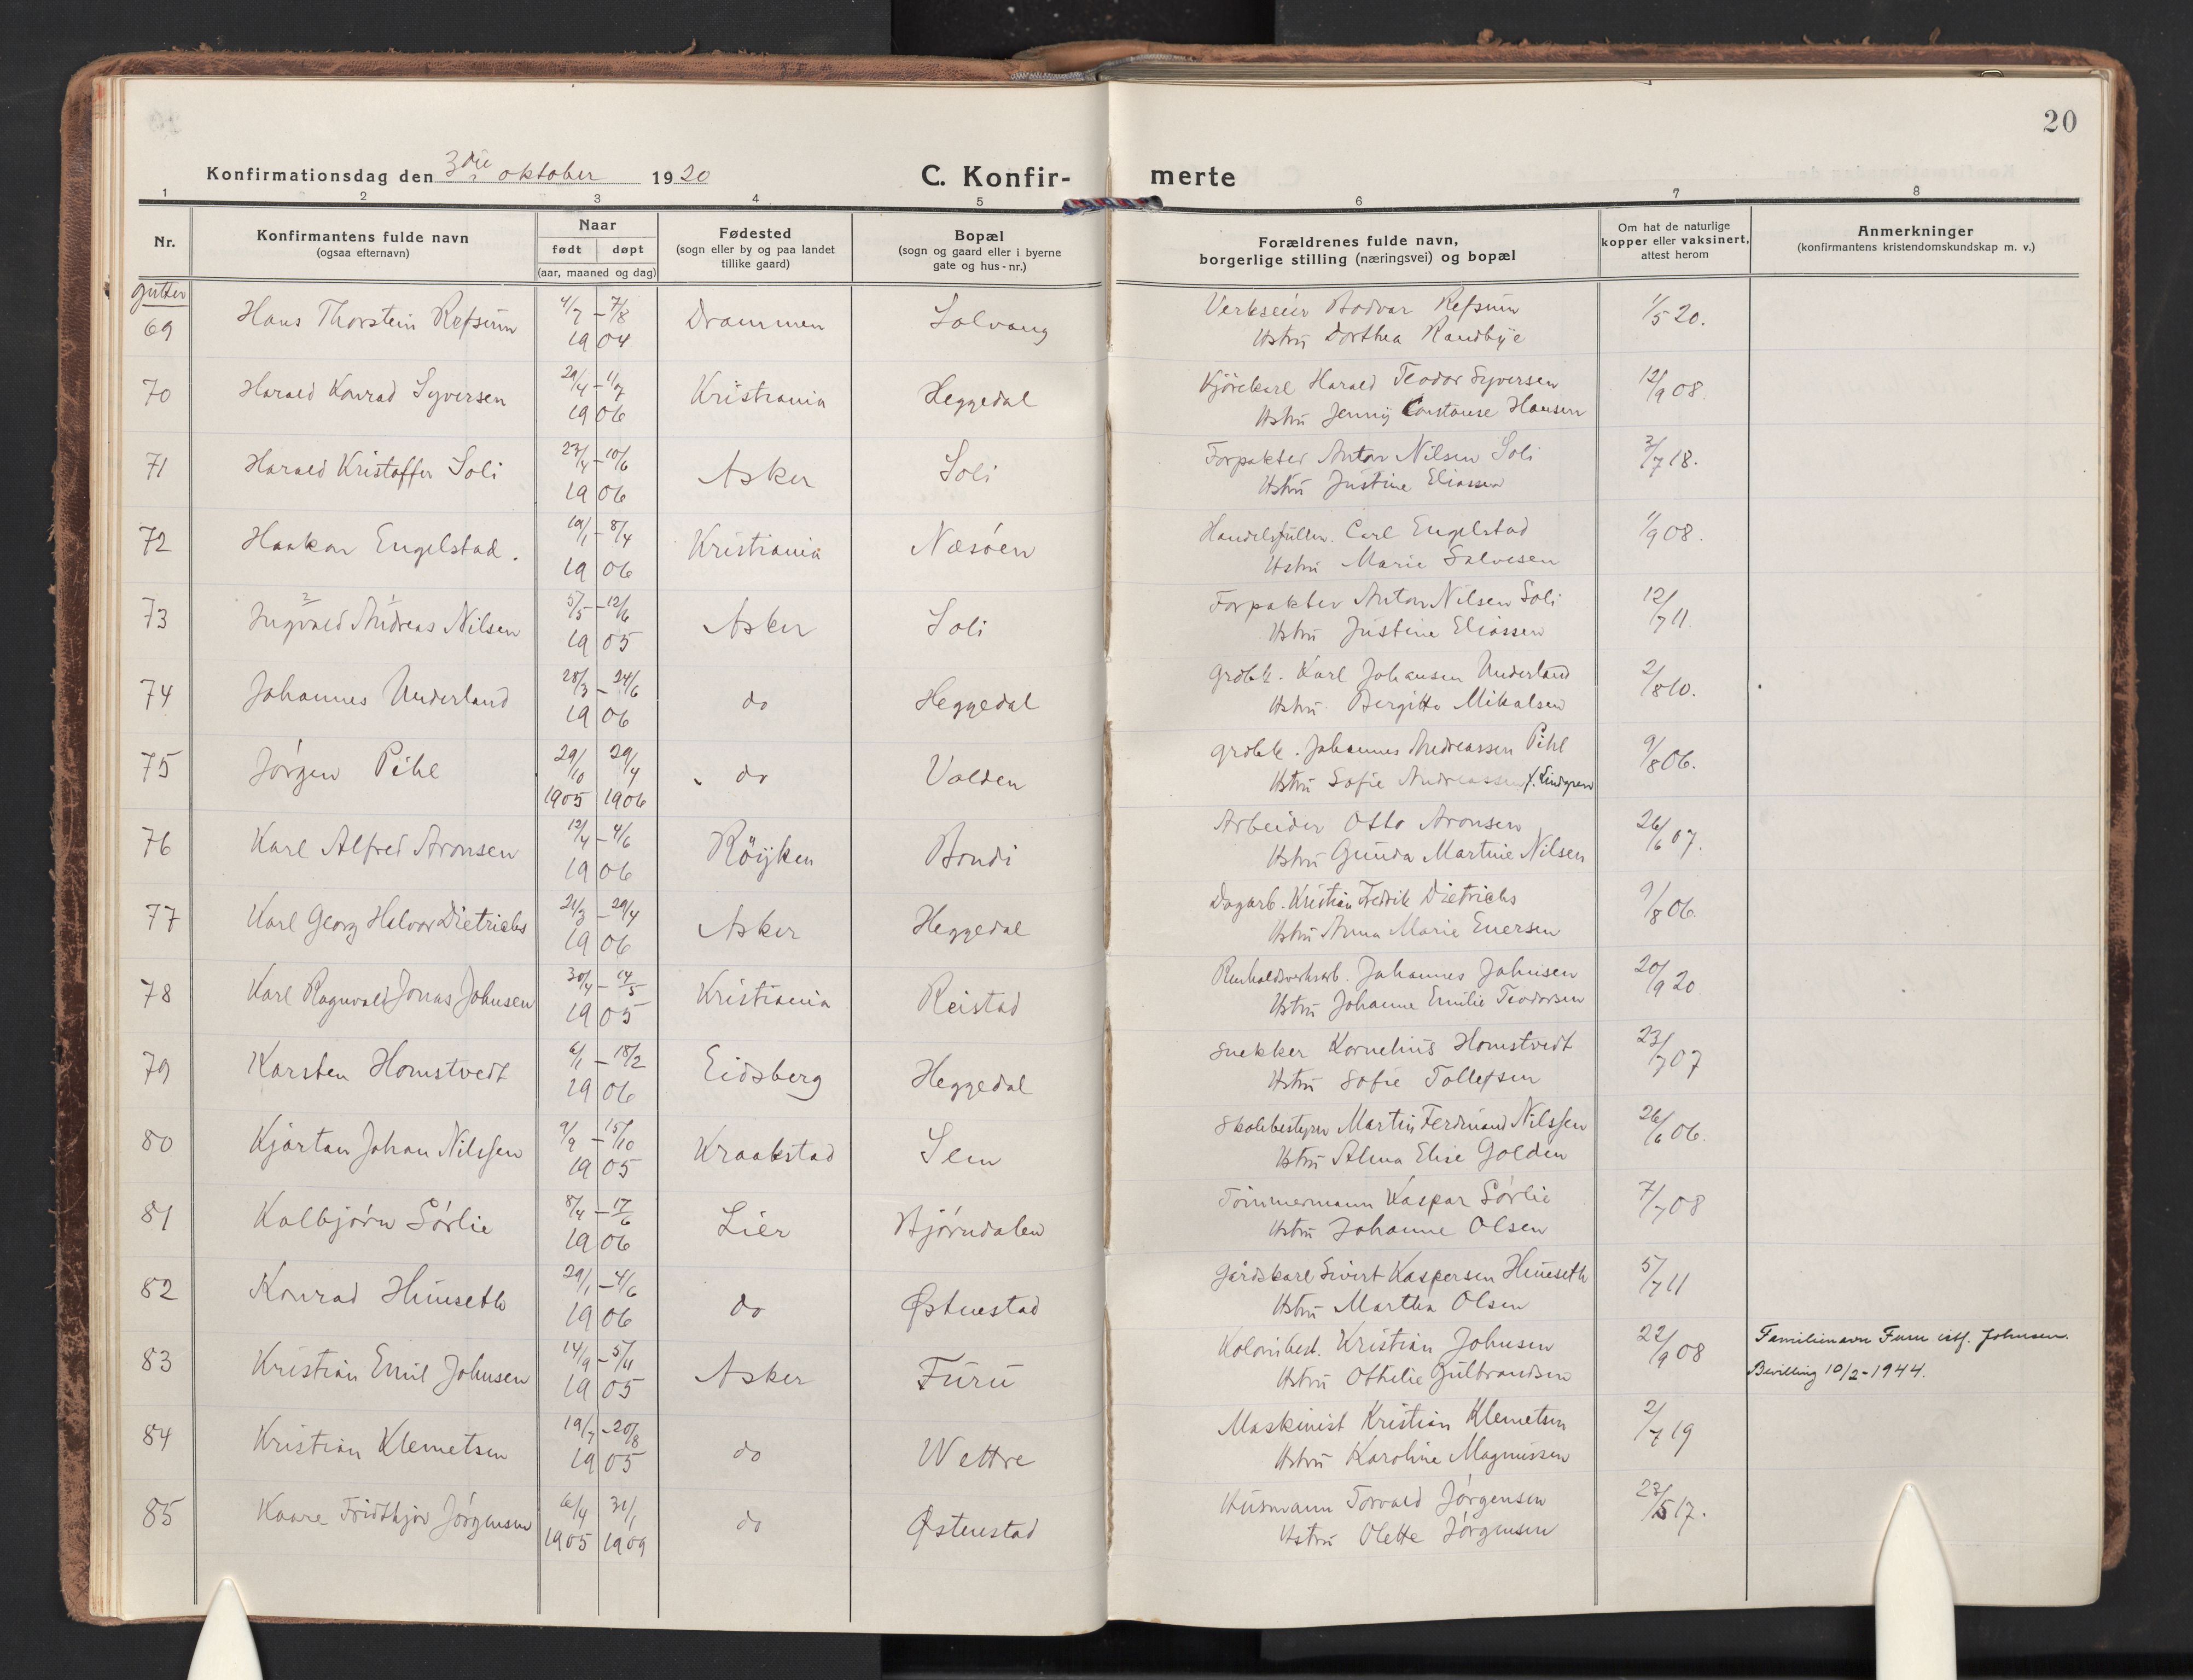 20
Konfirmationsdag den 3die oktober 1920
C. Konfir-
merte
1 2 3 4 5 6 7 8
Nr.
Konfirmantens fulde navn
(ogsaa efternavn)
Naar
født døpt
(aar, maaned og dag)
Fødested
(sogn eller by og paa landet
tillike gaard)
Bopæl
(sogn og gaard eller i byerne
gate og hus-nr.)
Forældrenes fulde navn,
borgerlige stilling (næringsvei) og bopæl
Om hat de naturlige
kopper eller vaksinert,
attest herom
Anmerkninger
(konfirmantens kristendomskundskap m. v.)
gutter
69 Hans Thorstein Refsum 4/7 – 7/8 1904 Drammen Solvang Verkseier Bodvar Refsum 1/5 20.
Hstru Dorthea Randbye
70 Harald Konrad Syversen 29/4 – 1/7 1906 Kristiania Heggedal Kjörekarl Harald Teodor Syversen 12/9 08.
Hstru Jenny Constanse Hansen
71 Harald Kristoffer Soli 23/4 – 10/6 1906 Asker Soli Forpakter Anton Nilsen Soli 3/7 18.
Hstru Justine Eliassen
72 Haakon Engelstad. 19/1 – 8/4 1906 Kristiania Næsöen Handelsfullm. Carl Engelstad 1/9 08.
Hstru Marie Salvesen
73 Ingvald Andreas Nilsen 5/5 – 12/6 1905 Asker Soli Forpakter Anton Nilsen Soli 12/7 11.
Hstru Justine Eliassen
74 Johannes Underland 28/3 – 24/6 1906 do Heggedal Grdbk. Karl Johansen Underland 2/8 10.
Hstru Bergitte Mikalsen
75 Jörgen Pihl 29/10 1905 29/4 1906 do Valden Grdbk. Johannes Andreassen Pihl 9/8 06.
Hstru Sofie Andreassen f. Lindgren
76 Karl Alfred Aronsen 12/4 – 4/6 1906 Röyken Bondi Arbeider Otto Aronsen 26/6 07.
Hstru Gunda Martine Nilsen
77 Karl Georg Halvor Dietrichs 21/3 – 29/4 1906 Asker Heggedal Dagarb. Kristian Fredrik Dietrichs 9/8 06.
Hstru Anna Marie Enersen
78 Karl Ragnvald Jonas Johnsen 30/4 – 14/5 1905 Kristiania Reistad Renholdsverksarb. Johannes Johnsen 20/9 20
Hstru Johanne Emilie Teodorsen
79 Karsten Homstvedt 6/1 – 18/2 1906 Eidsberg Heggedal Snekker Kornelius Homstvedt 23/7 07
Hstru Sofie Tollefsen
80 Kjartan Johan Nilssen 9/9 – 15/10 1905 Kraakstad Sem Skolebestyrer Martin Ferdinand Nilssen 26/6 06.
Hstru Alma Elise Golden
81 Kolbjörn Sörlie 8/4 – 17/6 1906 Lier Bjørndalen Tömmermann Kaspar Sörlie 7/7 08
Hstru Johanne Olsen
82 Konrad Huuseth 29/1 – 4/6 1906 do Østenstad Gårdskarl Sivert Kaspersen Huuseth 5/7 11
Hstru Martha Olsen
83 Kristian Emil Johnsen 14/9 – 5/11 1905 Asker Furu Kolonibest. Kristian Johnsen 22/9 08 Familienavn Furu istf. Johnsen.
Hstru Othilie Gulbrandsen Bevilling 10/2-1944.
84 Kristian Klemetsen 19/7 – 20/8 1905 do Wettre Maskinist Kristian Klemetsen 2/7 19
Hstru Karoline Magnussen
85 Kaare Fridthjov Jörgensen 6/4 1905 31/1 1909 do Østenstad Husmann Torvald Jörgensen 23/5 17.
Hstru Olette Jörgensen